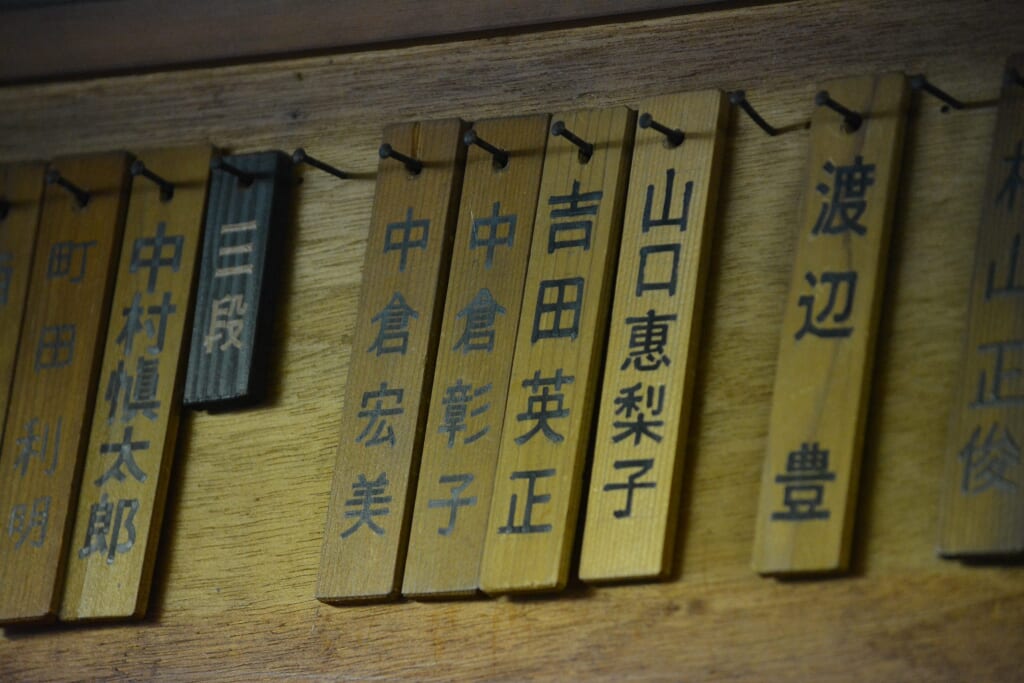 山正俊
渡辺豊
山口恵梨子
吉田英正
中倉彰子
中倉宏美
三段
中村慎太郎
町田利明